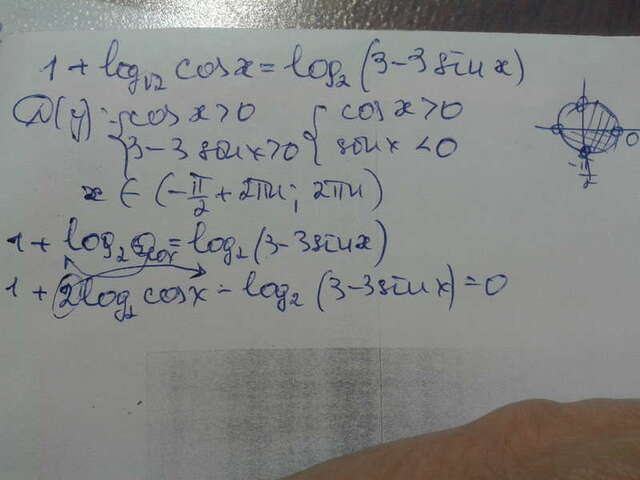 1 + log√2 cosx = log2 (3-3sinx)
D(y): { cosx>0 { cosx>0
{ 3-3sinx>0 { sinx<0
x ∈ (-π/2+2πn; 2πn)
0
-π/2
1 + log2 cosx = log2 (3-3sinx)
1 + 2log2 cosx - log2 (3-3sinx) = 0